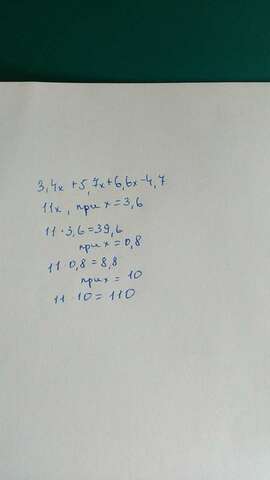 3,4x + 5,7x + 6,6x - 4,7
11x, при x = 3,6
11 · 3,6 = 39,6
при x = 0,8
11 · 0,8 = 8,8
при x = 10
11 · 10 = 110